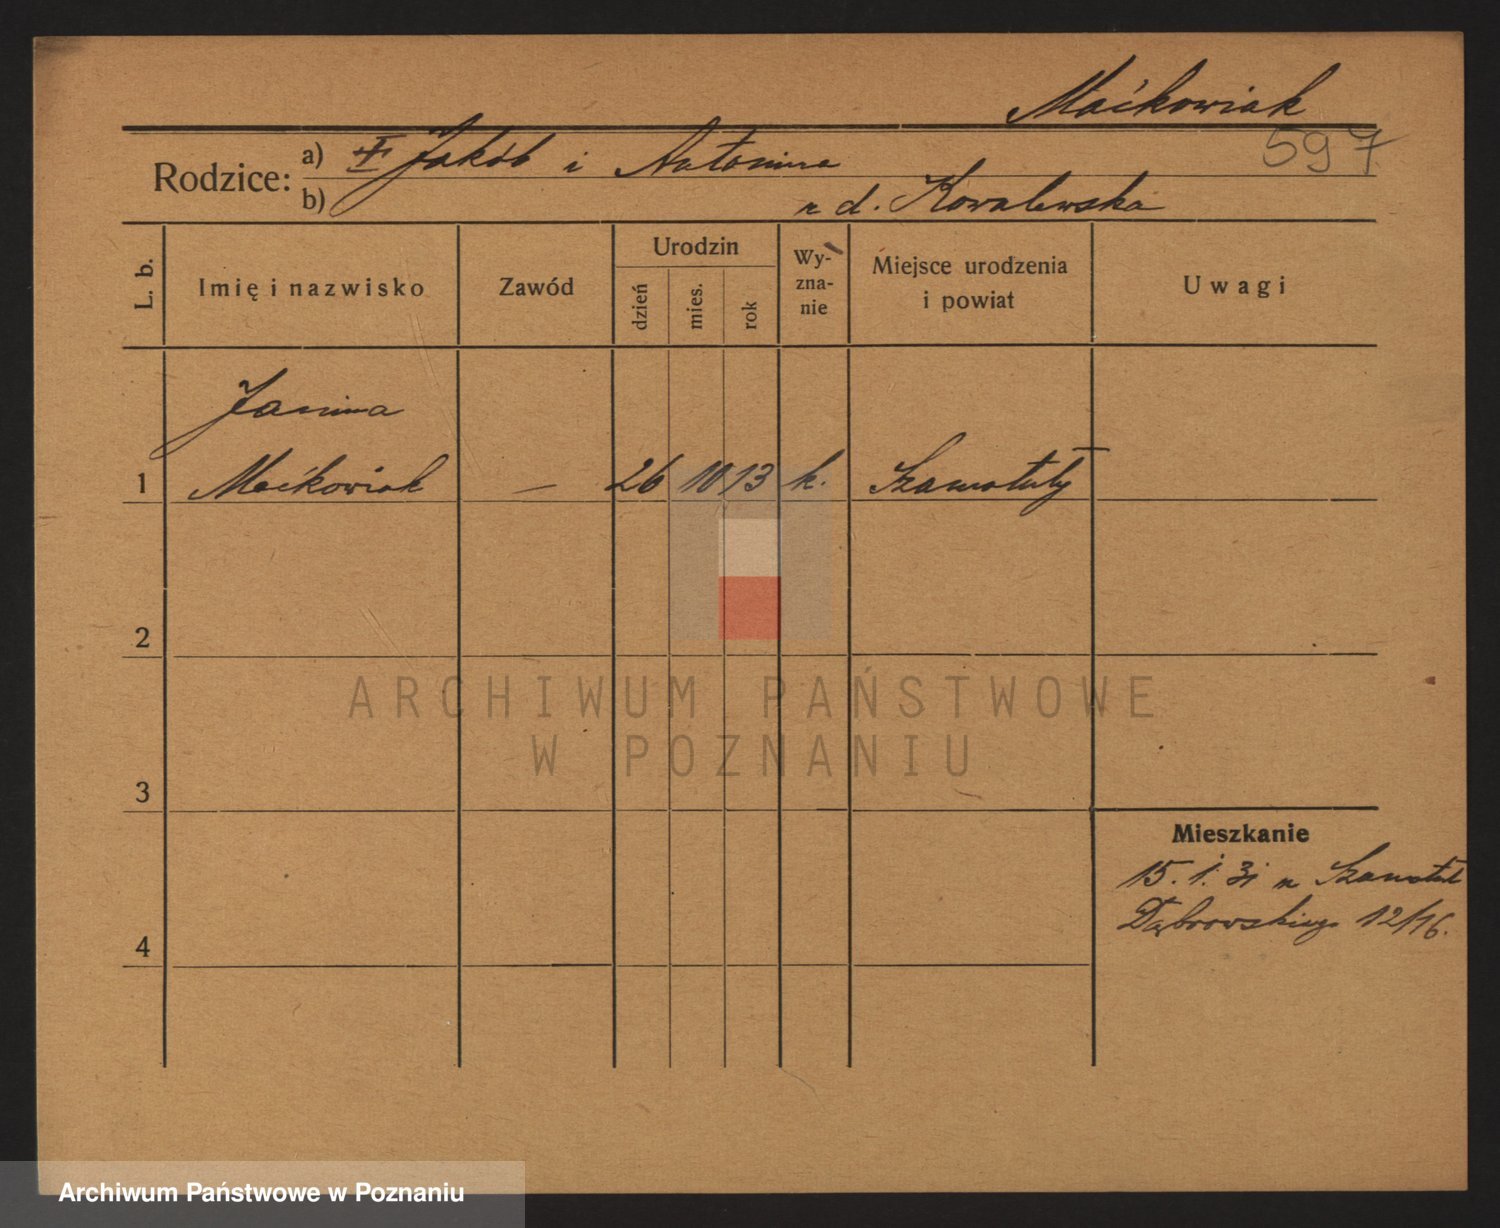 Maćkowiak
597
Rodzice: a) Jakób i Antonina
b) z d. Kowalewska
L. b.
Imię i nazwisko
Zawód
Urodzin
dzień
mies.
rok
Wy-
zna-
nie
Miejsce urodzenia
i powiat
Uwagi
Janina
1 Maćkowiak — 26 10 13 k. Szamotuły
2
ARCHIWUM PAŃSTWOWE
W POZNANIU
3
Mieszkanie
15. 1. 31 Szamotuł
Dąbrowskiego 12/16.
4
Archiwum Państwowe w Poznaniu